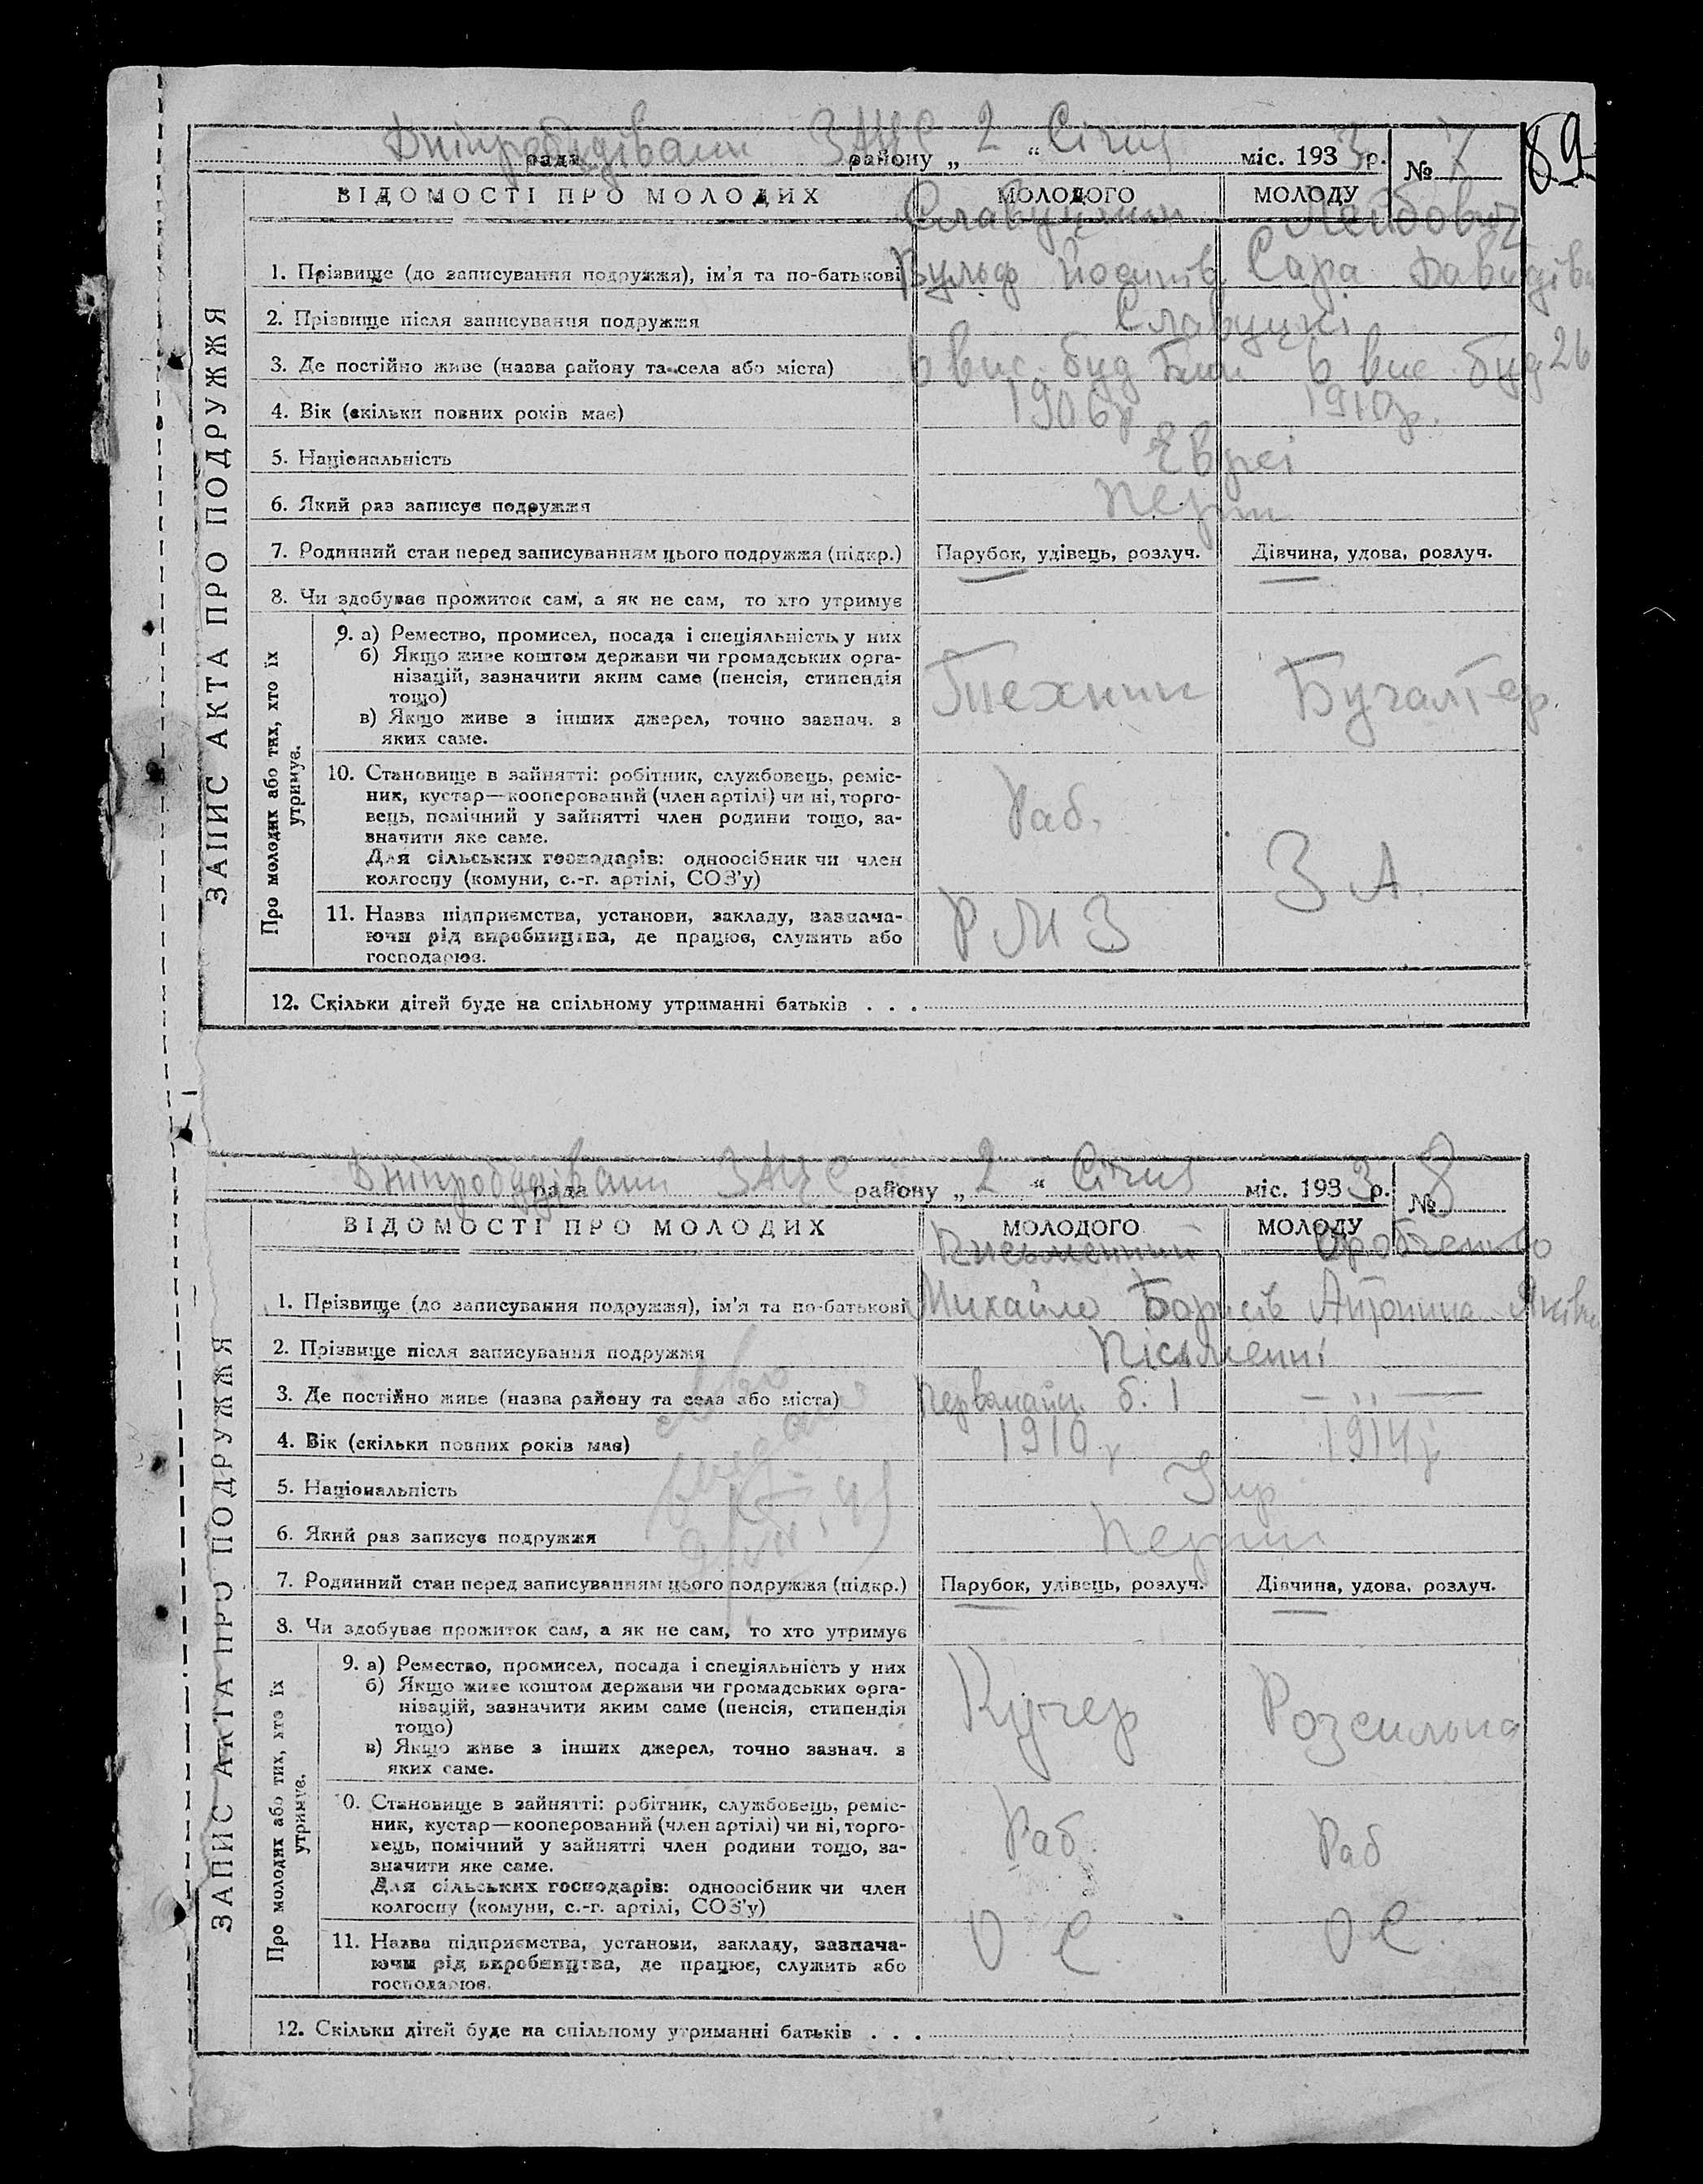 89
Дніпробудівськ ЗАЦС 2 Січня 3 7
рада району „ “ міс. 193 р. №
ВІДОМОСТІ ПРО МОЛОДИХ МОЛОДОГО МОЛОДУ
Славуцький Лейбович
1. Прізвище (до записування подружжя), ім'я та по-батькові Вульф Йосипів Сара Давидівн
2. Прізвище після записування подружжя Славуцкі
3. Де постійно живе (назва району та села або міста) 6 вис. буд 6 вис. буд 26
4. Вік (скільки повних років має) 1906р 1910р.
5. Національність Євреі
6. Який раз записує подружжя перш
7. Родинний стан перед записуванням цього подружжя (підкр.) Парубок, удівець, розлуч. Дівчина, удова, розлуч.
8. Чи здобуває прожиток сам, а як не сам, то хто утримує
ЗАПИС АКТА ПРО ПОДРУЖЖЯ
Про молодих або тих, хто їх утримує.
9. а) Ремество, промисел, посада і спеціяльність у них
б) Якщо живе коштом держави чи громадських орга-
нізацій, зазначити яким саме (пенсія, стипендія
тощо)
в) Якщо живе з інших джерел, точно зазнач. з
яких саме.
Техник Бугалтер.
10. Становище в зайнятті: робітник, службовець, реміс-
ник, кустар—кооперований (член артілі) чи ні, торго-
вець, помічний у зайнятті член родини тощо, за-
значити яке саме.
Для сільських господарів: одноосібник чи член
колгоспу (комуни, с.-г. артілі, СОЗ'у)
Раб. З А.
11. Назва підприємства, установи, закладу, зазнача-
ючи рід виробництва, де працює, служить або
господарює.
Р М З
12. Скільки дітей буде на спільному утриманні батьків . . .
Дніпробудівськ ЗАЦС 2 Січня 3 8
рада району „ “ міс. 193 р. №
ВІДОМОСТІ ПРО МОЛОДИХ МОЛОДОГО МОЛОДУ
Письменний
1. Прізвище (до записування подружжя), ім'я та по-батькові Михайло Борисів Антонина Яківн
2. Прізвище після записування подружжя Пісьменні
3. Де постійно живе (назва району та села або міста) Первомайц. б. 1 — „ —
4. Вік (скільки повних років має) 1910 р 1914р
5. Національність Укр
6. Який раз записує подружжя перш
7. Родинний стан перед записуванням цього подружжя (підкр.) Парубок, удівець, розлуч. Дівчина, удова, розлуч.
8. Чи здобуває прожиток сам, а як не сам, то хто утримує
ЗАПИС АКТА ПРО ПОДРУЖЖЯ
Про молодих або тих, хто їх утримує.
9. а) Ремество, промисел, посада і спеціяльність у них
б) Якщо живе коштом держави чи громадських орга-
нізацій, зазначити яким саме (пенсія, стипендія
тощо)
в) Якщо живе з інших джерел, точно зазнач. з
яких саме.
Кучер Розсильна
0. Становище в зайнятті: робітник, службовець, реміс-
ник, кустар—кооперований (член артілі) чи ні, торго-
вець, помічний у зайнятті член родини тощо, за-
значити яке саме.
Для сільських господарів: одноосібник чи член
колгоспу (комуни, с.-г. артілі, СОЗ'у)
Раб. Раб
11. Назва підприємства, установи, закладу, зазнача-
ючи рід виробництва, де працює, служить або
господарює.
О С О С.
12. Скільки дітей буде на спільному утриманні батьків . . .